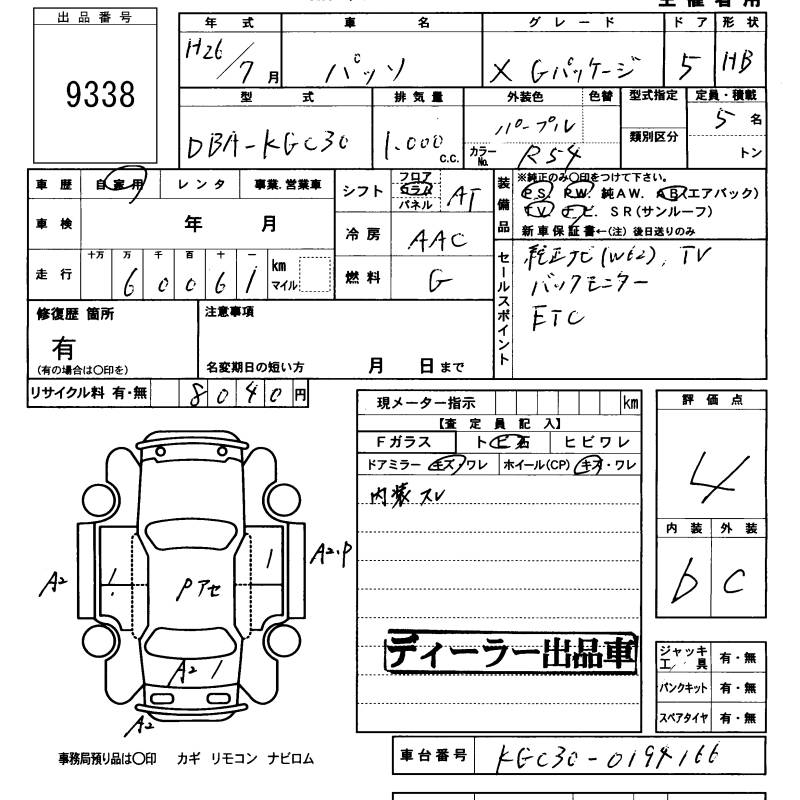 出品番号
9338
年式 車名 グレード ドア 形状
H26/7月 パッソ X Gパッケージ 5 HB
型式 排気量 外装色 色替 型式指定 定員・積載
DBA-KGC30 1.000 c.c. パープル 類別区分 5 名
カラーNo. R54 トン
車歴 自家用 レンタ 事業.営業車
シフト フロア コラム パネル AT
装備品 ※純正のみ〇印をつけて下さい。
PS. PW. 純AW. AB(エアバック)
TV. ナビ. SR(サンルーフ)
新車保証書←(注)後日送りのみ
車検 年 月
冷房 AAC
走行 十万 万 千 百 十 一 km マイル
6 0 0 6 1
燃料 G
セールスポイント
純正ナビ(W62), TV
バックモニター
ETC
修復歴 箇所
有
(有の場合は〇印を)
注意事項
名変期日の短い方 月 日まで
リサイクル料 有・無 8 0 4 0 円
現メーター指示 km
【査定員記入】
Fガラス トビ石 ヒビワレ
ドアミラー キズ・ワレ ホイール(CP) キズ・ワレ
内装スレ
評価点
4
内装 外装
b C
A2 1 Pアセ 1 A2.P
A2 1
A2
ディーラー出品車
ジャッキ工具 有・無
パンクキット 有・無
スペアタイヤ 有・無
事務局預り品は〇印 カギ リモコン ナビロム
車台番号 KGC30-0194166